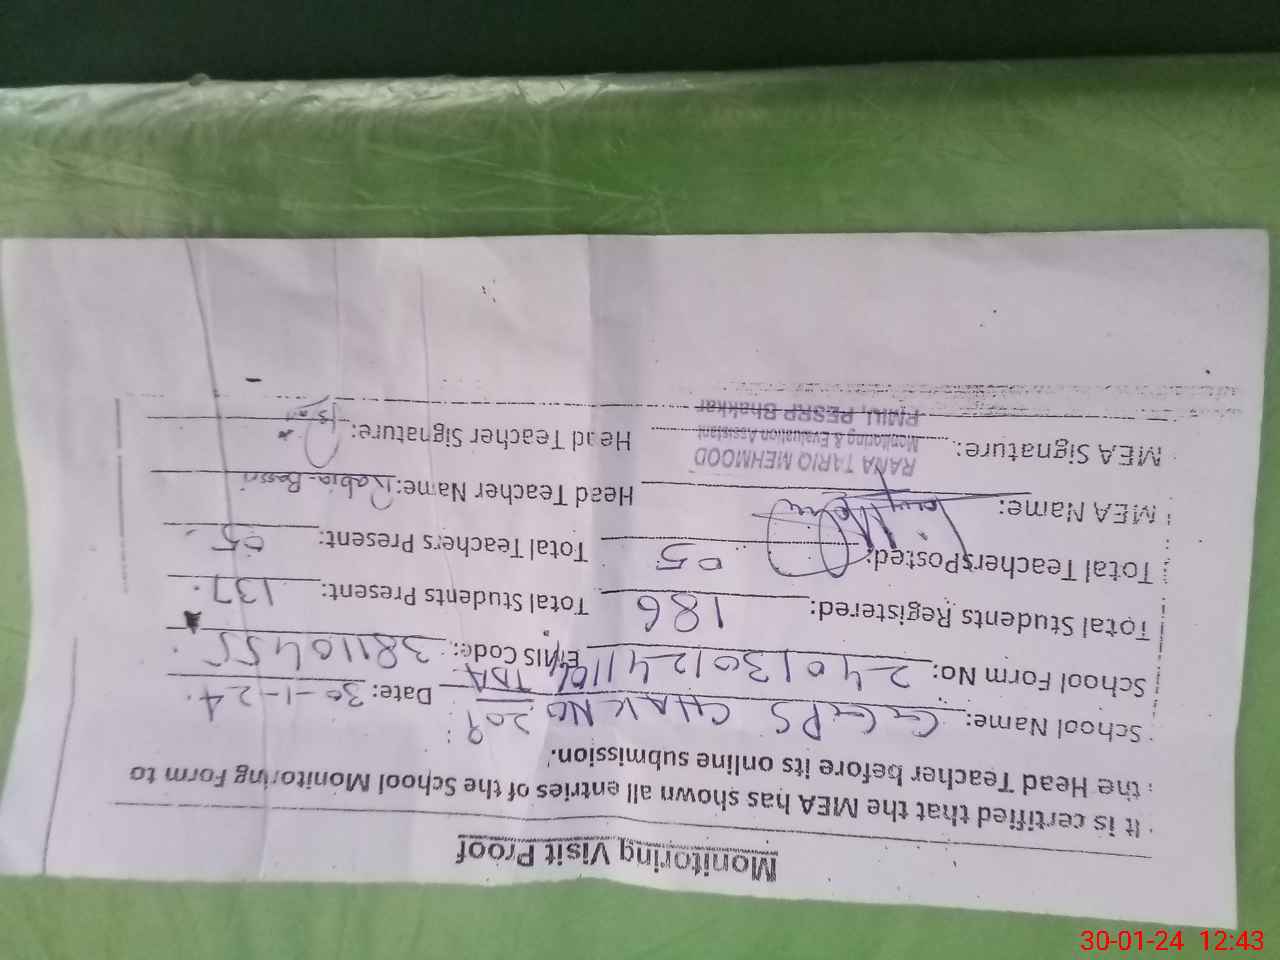 Monitoring Visit Proof
It is certified that the MEA has shown all entries of the School Monitoring Form to
the Head Teacher before its online submission.
School Name: GGPS CHAK NO 209 TDA Date: 30-1-24
School Form No: 24013012411104 EMIS Code: 38110455
Total Students Registered: 186 Total Students Present: 137
Total Teachers Posted: 05 Total Teachers Present: 05
MEA Name: Head Teacher Name: Rabia Bassri
MEA Signature: Head Teacher Signature:
RANA TARIQ MEHMOOD
Monitoring & Evaluation Assistant
PMIU, PESRP Bhakkar
30-01-24 12:43